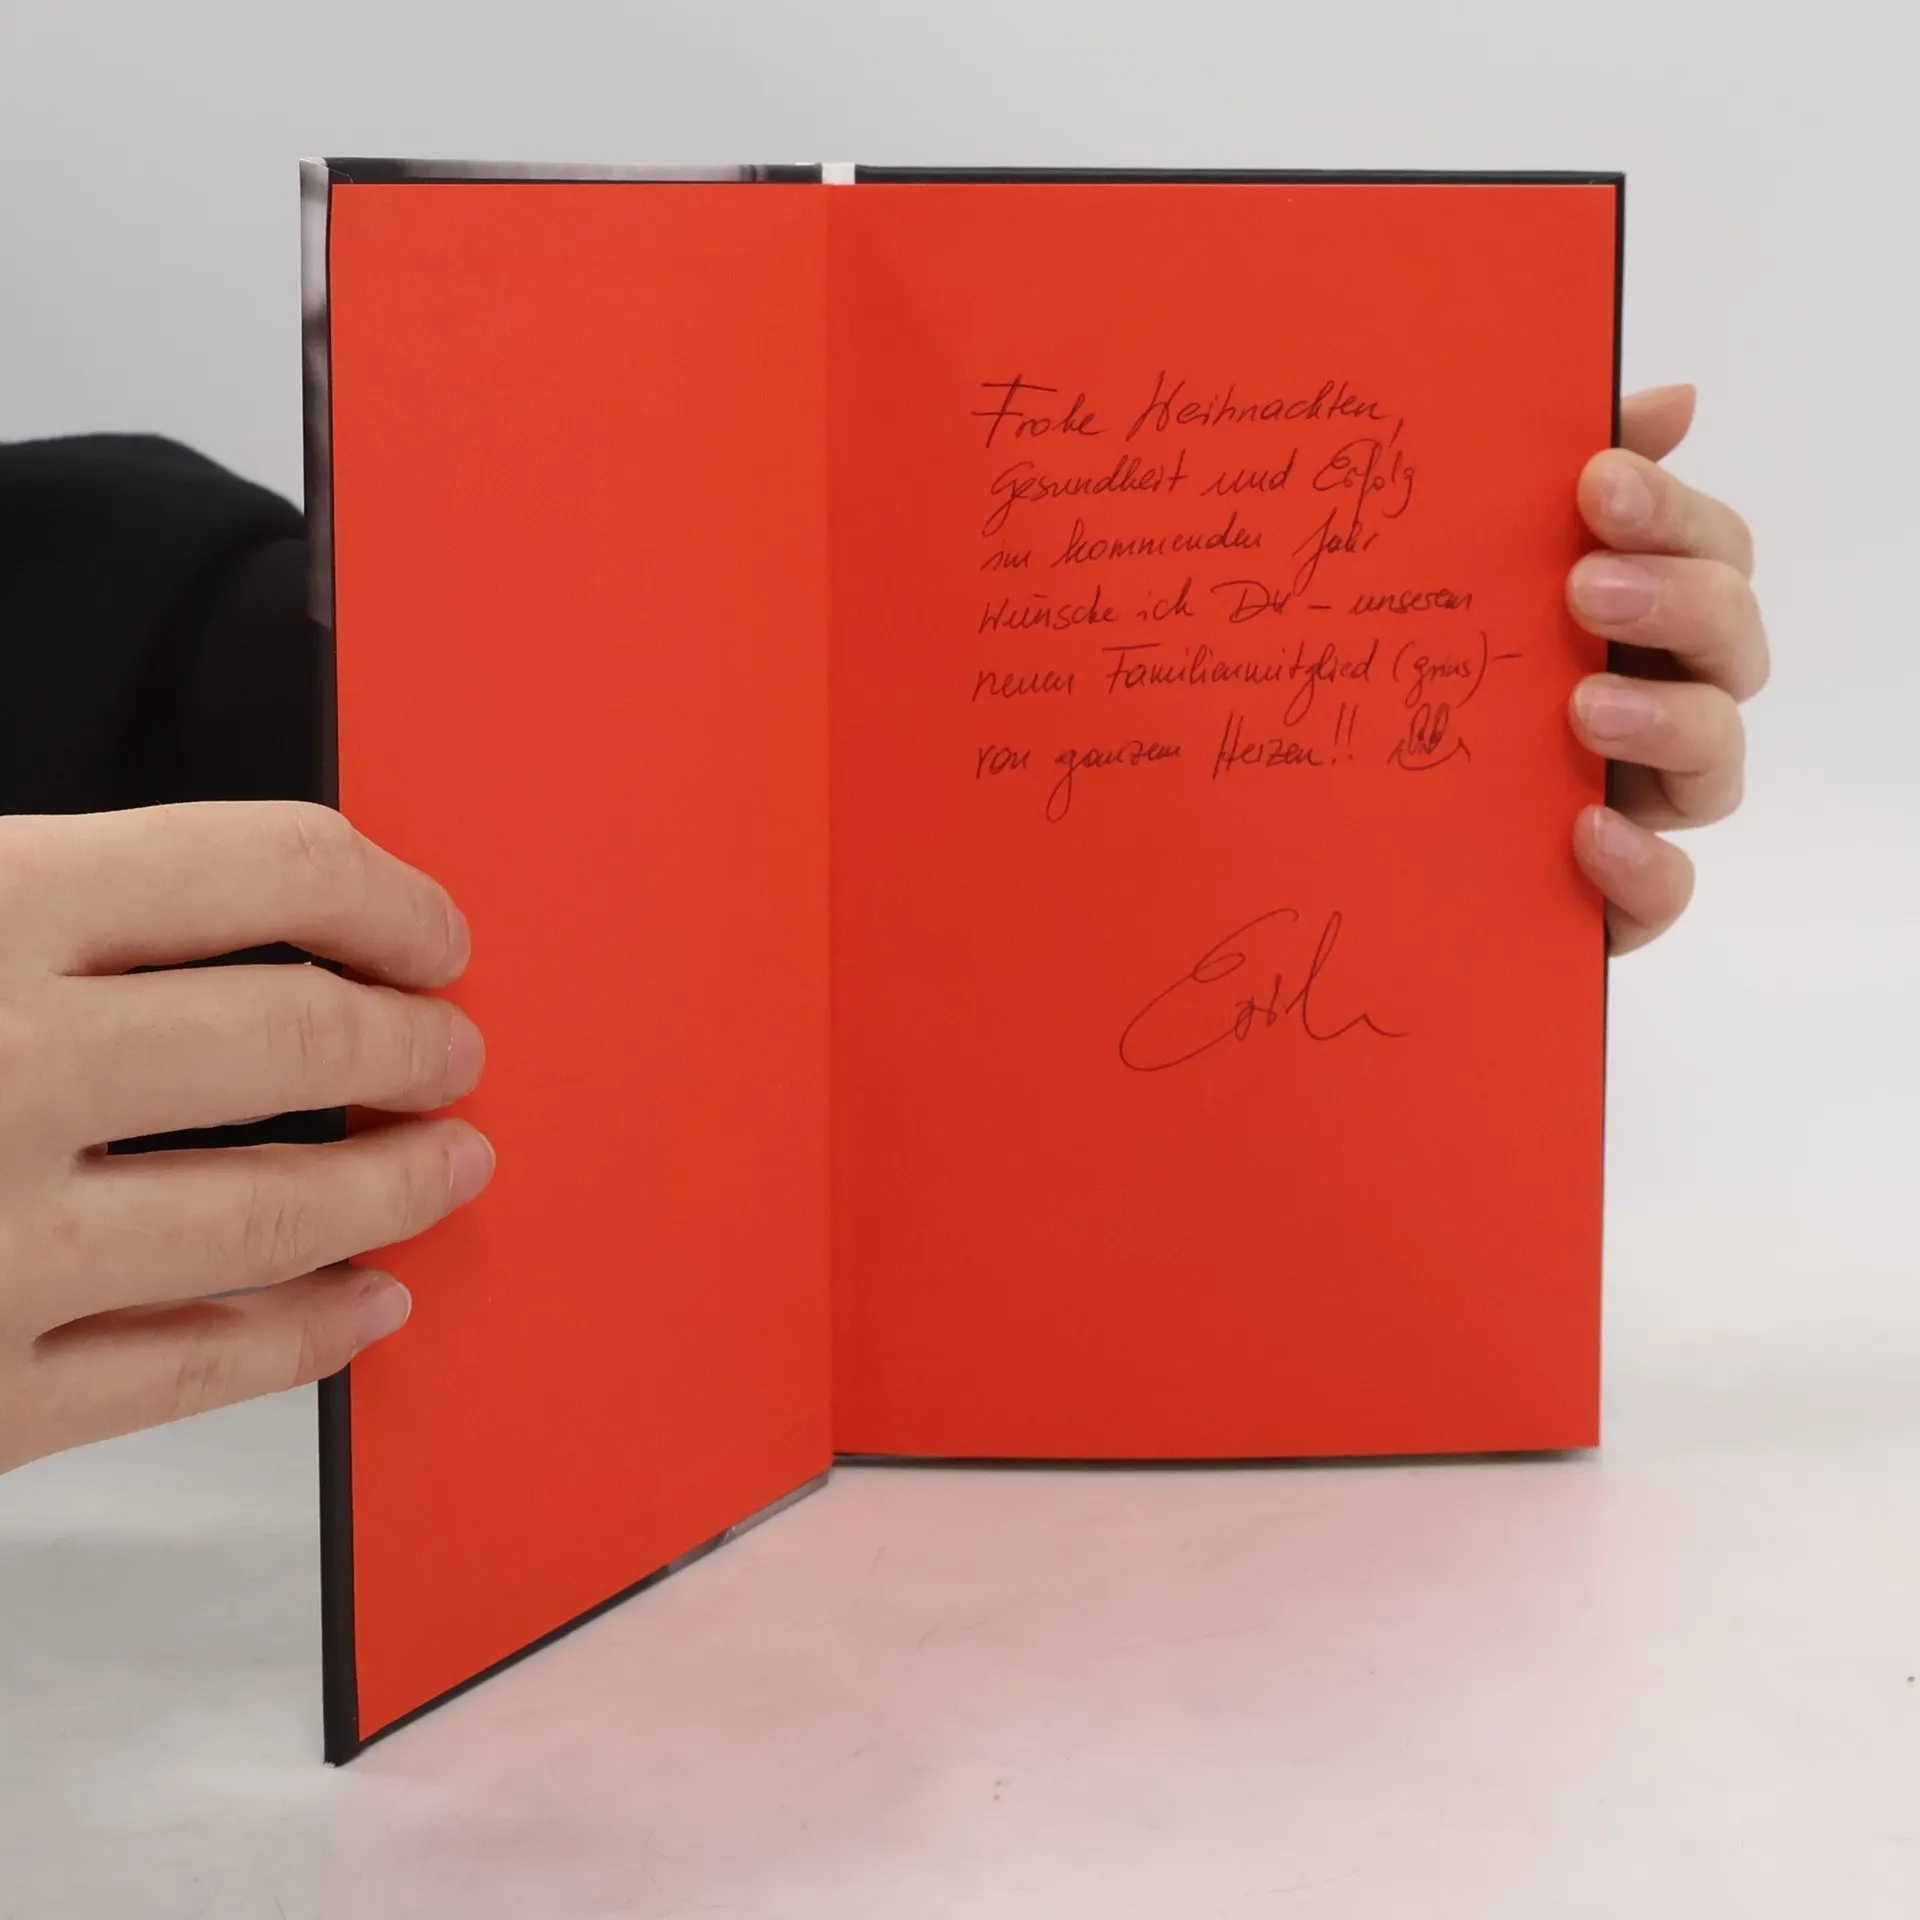 Frohe Weihnachten,
Gesundheit und Erfolg
im kommenden Jahr
Wünsche ich Dir – unserem
neuen Familienmitglied (grins) –
von ganzem Herzen!!